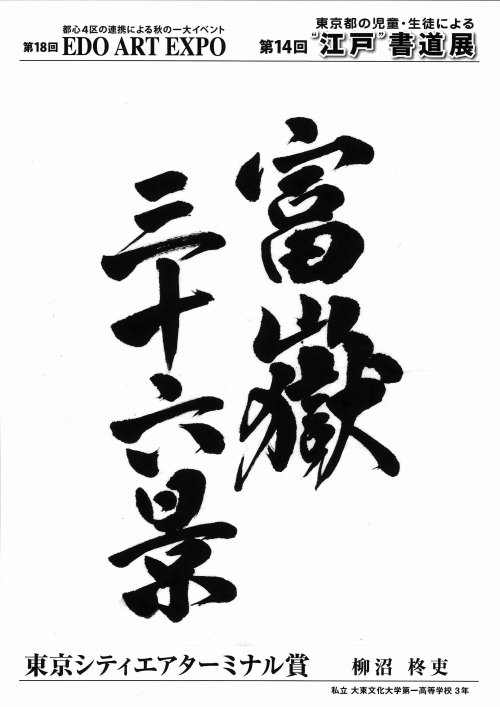 都心4区の連携による秋の一大イベント
第18回 EDO ART EXPO
東京都の児童・生徒による
第14回 “江戸” 書道展
富嶽
三十六景
東京シティエアターミナル賞 柳沼 柊吏
私立 大東文化大学第一高等学校 3年